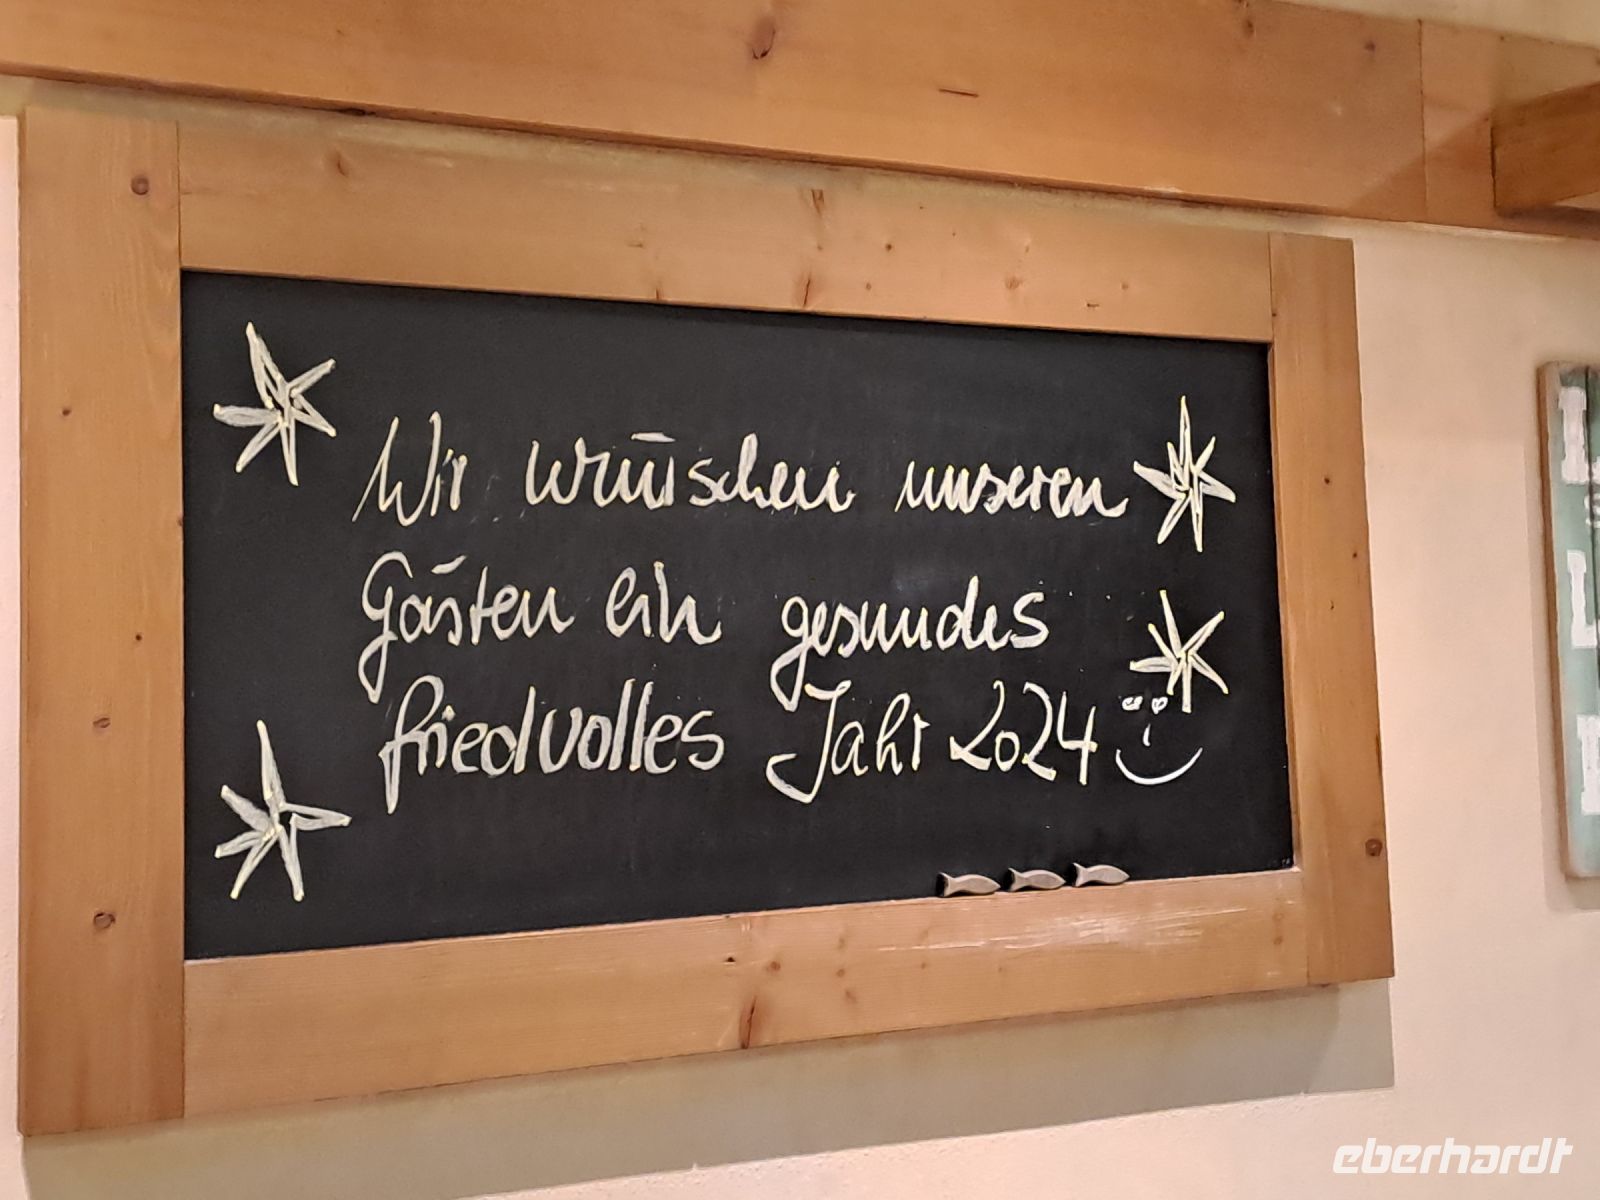 Wir wünschen unseren
Gästen ein gesundes
friedvolles Jahr 2024
eberhardt